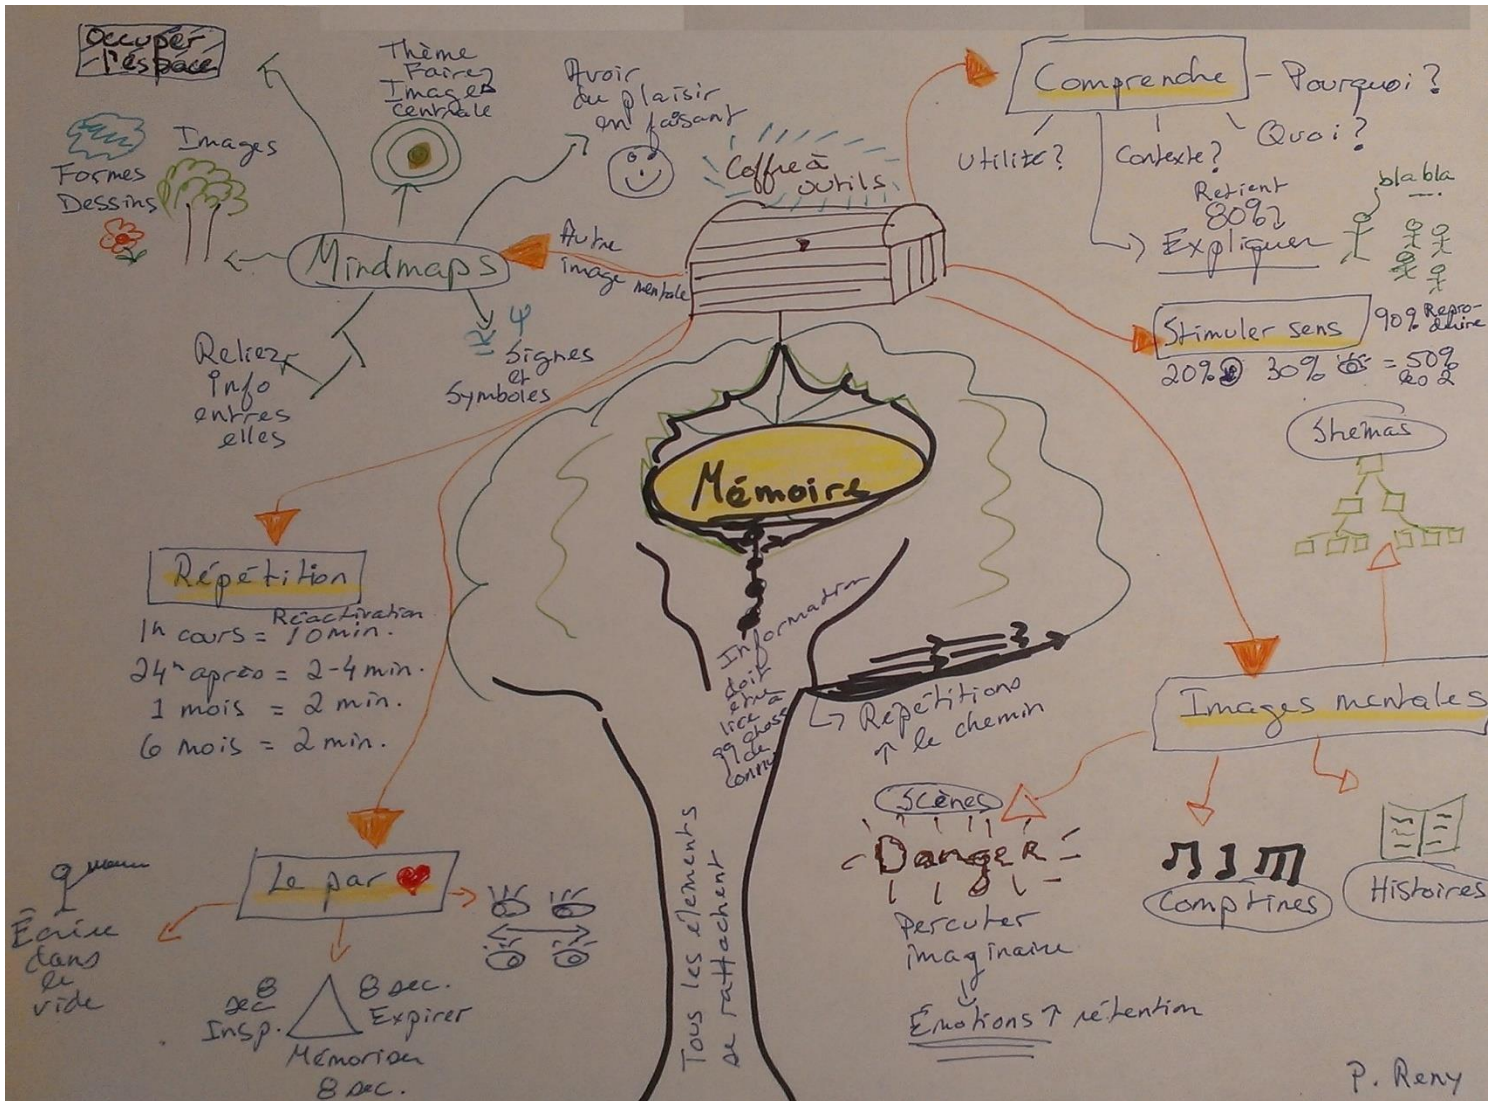 Occuper
l'espace
Thème
Faire
Image
Centrale
Avoir
du plaisir
en faisant
Images
Formes
Dessins
Mindmaps
Autre
image mentale
Reliez
info
entres
elles
Signes
et
Symboles
Coffre à
outils
Comprendre
- Pourquoi ?
Utilité ?
Contexte ?
Quoi ?
Retient
80%
Expliquer
bla bla
Stimuler sens
90% Repro-
duire
20% 30% = 50%
les 2
Shémas
Mémoire
Répétition
Réactivation
1h cours = 10 min.
24h après = 2-4 min.
1 mois = 2 min.
6 mois = 2 min.
Information
doit
être
liée à
de
connu
Répétitions
↑ le chemin
Images mentales
Scènes
Danger
Percuter
imaginaire
Émotions ↑ rétention
Comptines
Histoires
Le par ♥
Écrire
dans
le
vide
8
sec
Insp.
8 sec.
Expirer
Mémoriser
8 sec.
Tous les élements
se rattachent
P. Reny